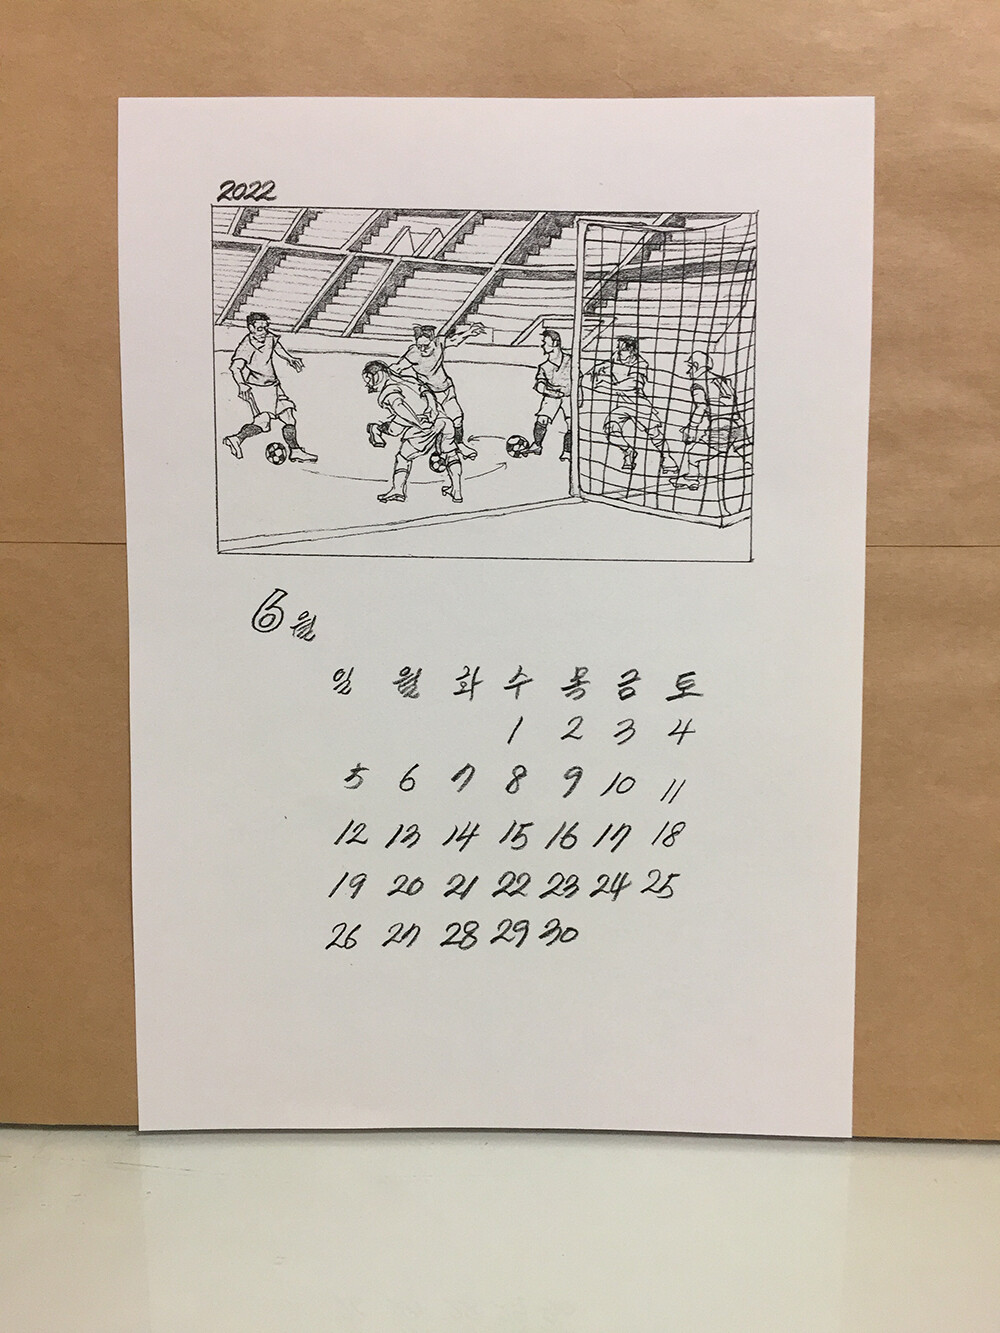 2022
6월
일 월 화 수 목 금 토
1 2 3 4
5 6 7 8 9 10 11
12 13 14 15 16 17 18
19 20 21 22 23 24 25
26 27 28 29 30